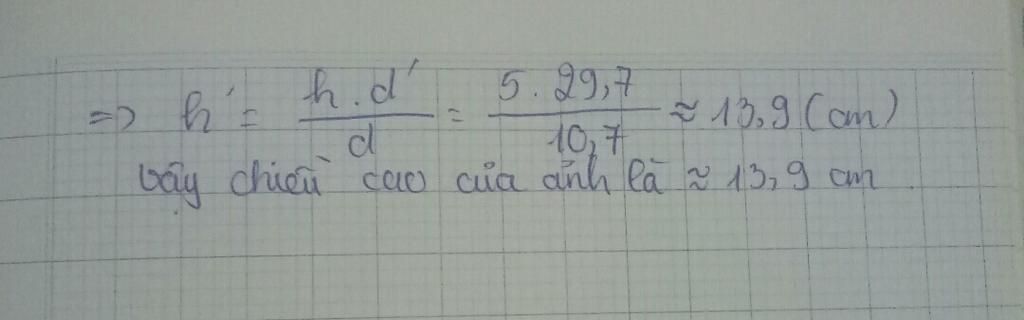 => h' = h.d' / d = 5.29,7 / 10,7 ≈ 13,9 (cm)
Vậy chiều cao của ảnh là ≈ 13,9 cm